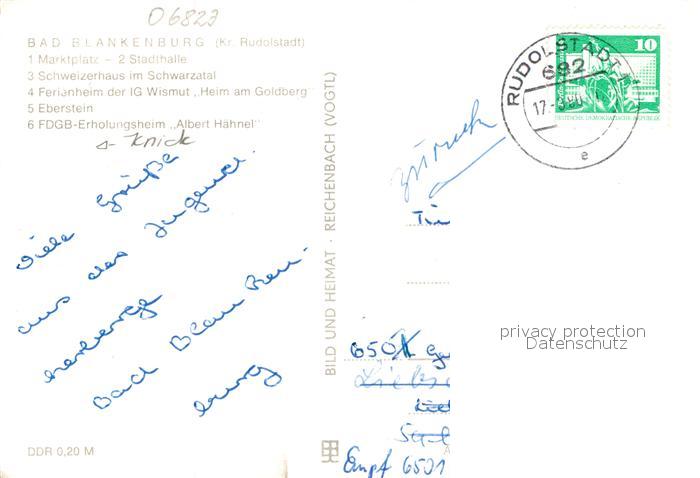 06823
BAD BLANKENBURG (Kr. Rudolstadt)
1 Marktplatz – 2 Stadthalle
3 Schweizerhaus im Schwarzatal
4 Ferienheim der IG Wismut „Heim am Goldberg"
5 Eberstein
6 FDGB-Erholungsheim „Albert Hähnel"
Knick
Viele Grüße
aus der Jugend-
herberge
Bad Blanken-
burg
DDR 0,20 M
BILD UND HEIMAT · REICHENBACH (VOGTL)
RUDOLSTADT 1
682
17.
e
10
DEUTSCHE DEMOKRATISCHE REPUBLIK
zurück
650
Empf 6501
privacy protection
Datenschutz